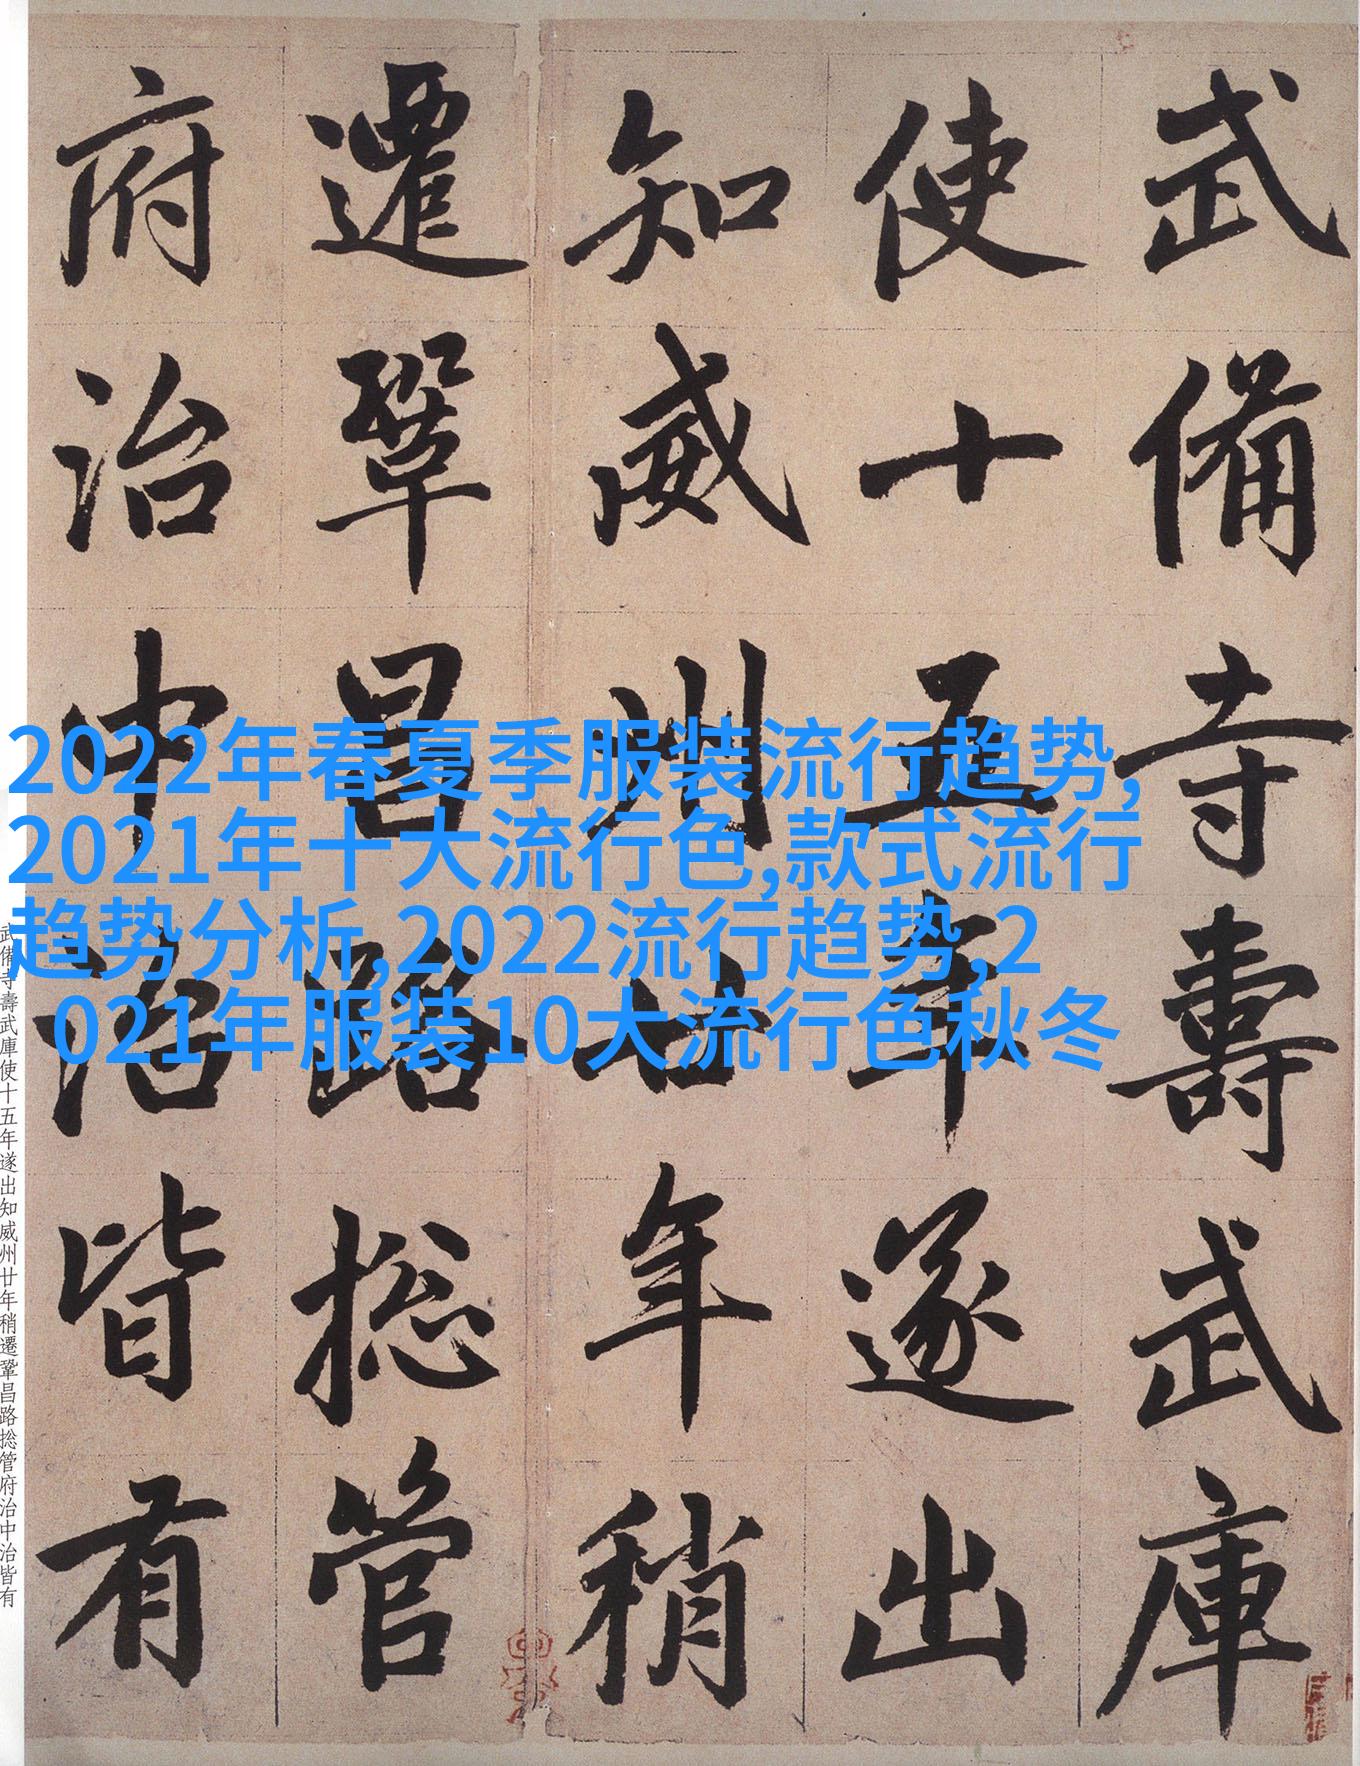 武備寺壽武庫
使十五年遂出
知威州廿年稍
遷鞏昌路捴管
府治中治皆有
2022年春夏季服装流行趋势,
2021年十大流行色,款式流行
趋势分析,2022流行趋势,2
021年服装10大流行色秋冬
武備寺壽武庫使十五年遂出知威州廿年稍遷鞏昌路捴管府治中治皆有